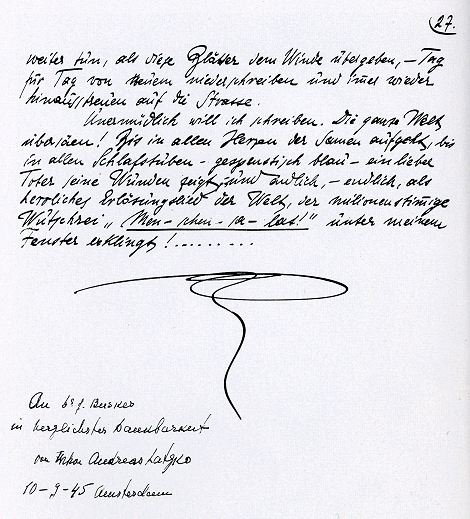 27.
weiter tun, als diese Blätter dem Winde übergeben, – Tag
für Tag von Neuem niederschreiben und immer wieder
hinausstreuen auf die Strasse.
Unermüdlich will ich schreiben. Die ganze Welt
übersäen! Bis in allen Herzen der Samen aufgeht, bis
in allen Schlafstuben – gespenstisch blau – ein lieber
Toter seine Wunden zeigt, und endlich, – endlich, als
herrliches Erlösungslied der Welt, der millionenstimmige
Wutschrei „Men–schen–sa–lat!" unter meinem
Fenster erklingt!.........
An
in herzlichster Dankbarkeit
von Andreas Latzko
10–9–45 Amsterdam